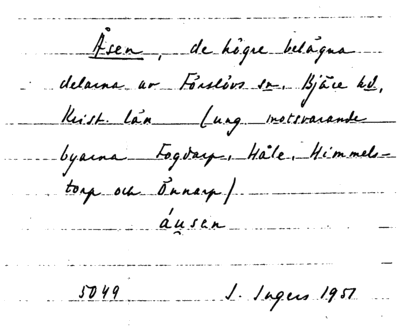 Åsen, de högre belägna
delarna av Förslövs sn, Bjäre hd,
Krist. län (ung motsvarande
byarna Fogdarp, Håle, Himmels-
torp och Önnarp)
áusen
5049 I. Ingers 1951